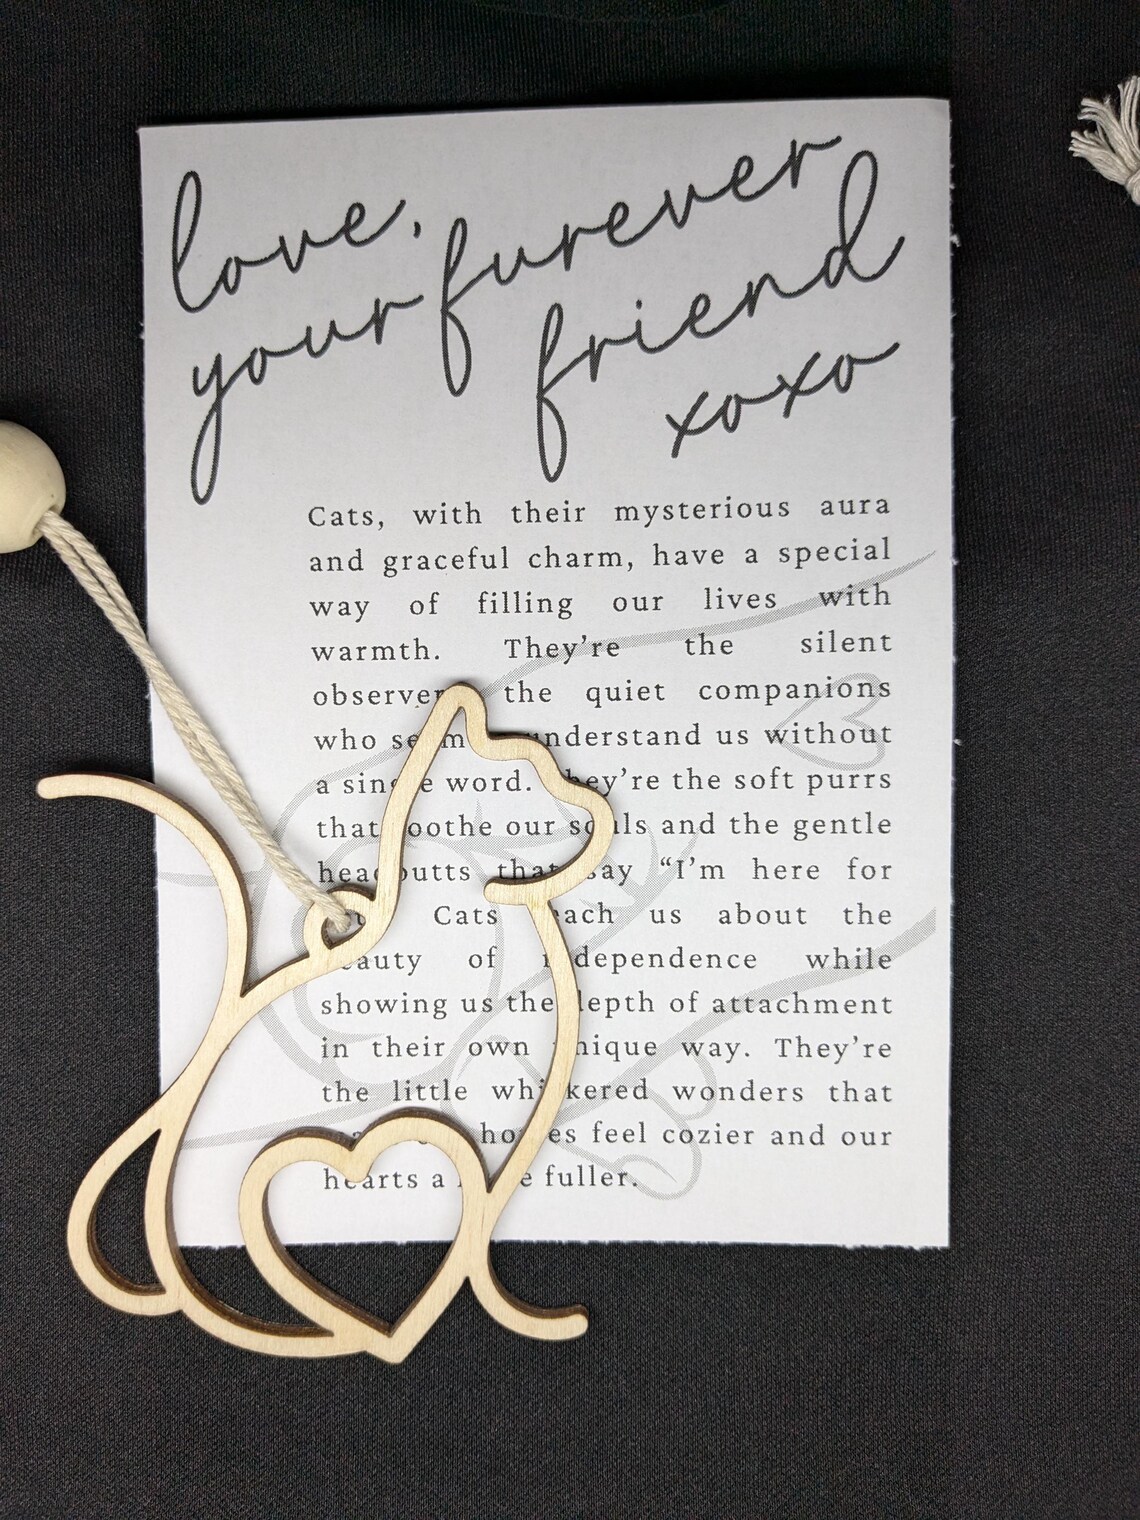 love,
your furever
friend
xoxo
Cats, with their mysterious aura
and graceful charm, have a special
way of filling our lives with
warmth. They're the silent
observer the quiet companions
who understand us without
a single word. They're the soft purrs
that soothe our souls and the gentle
headbutts that say “I'm here for
Cats teach us about the
beauty of independence while
showing us the depth of attachment
in their own unique way. They're
the little whiskered wonders that
homes feel cozier and our
hearts a fuller.